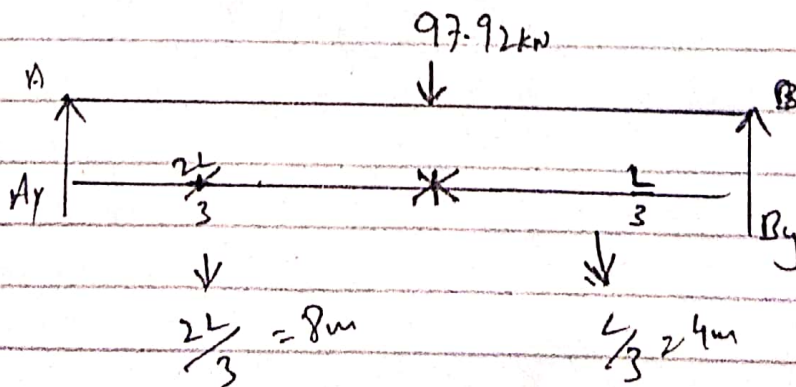 97.92kN
A B
2L/3 L/3
Ay By
2L/3 = 8m L/3 = 4m